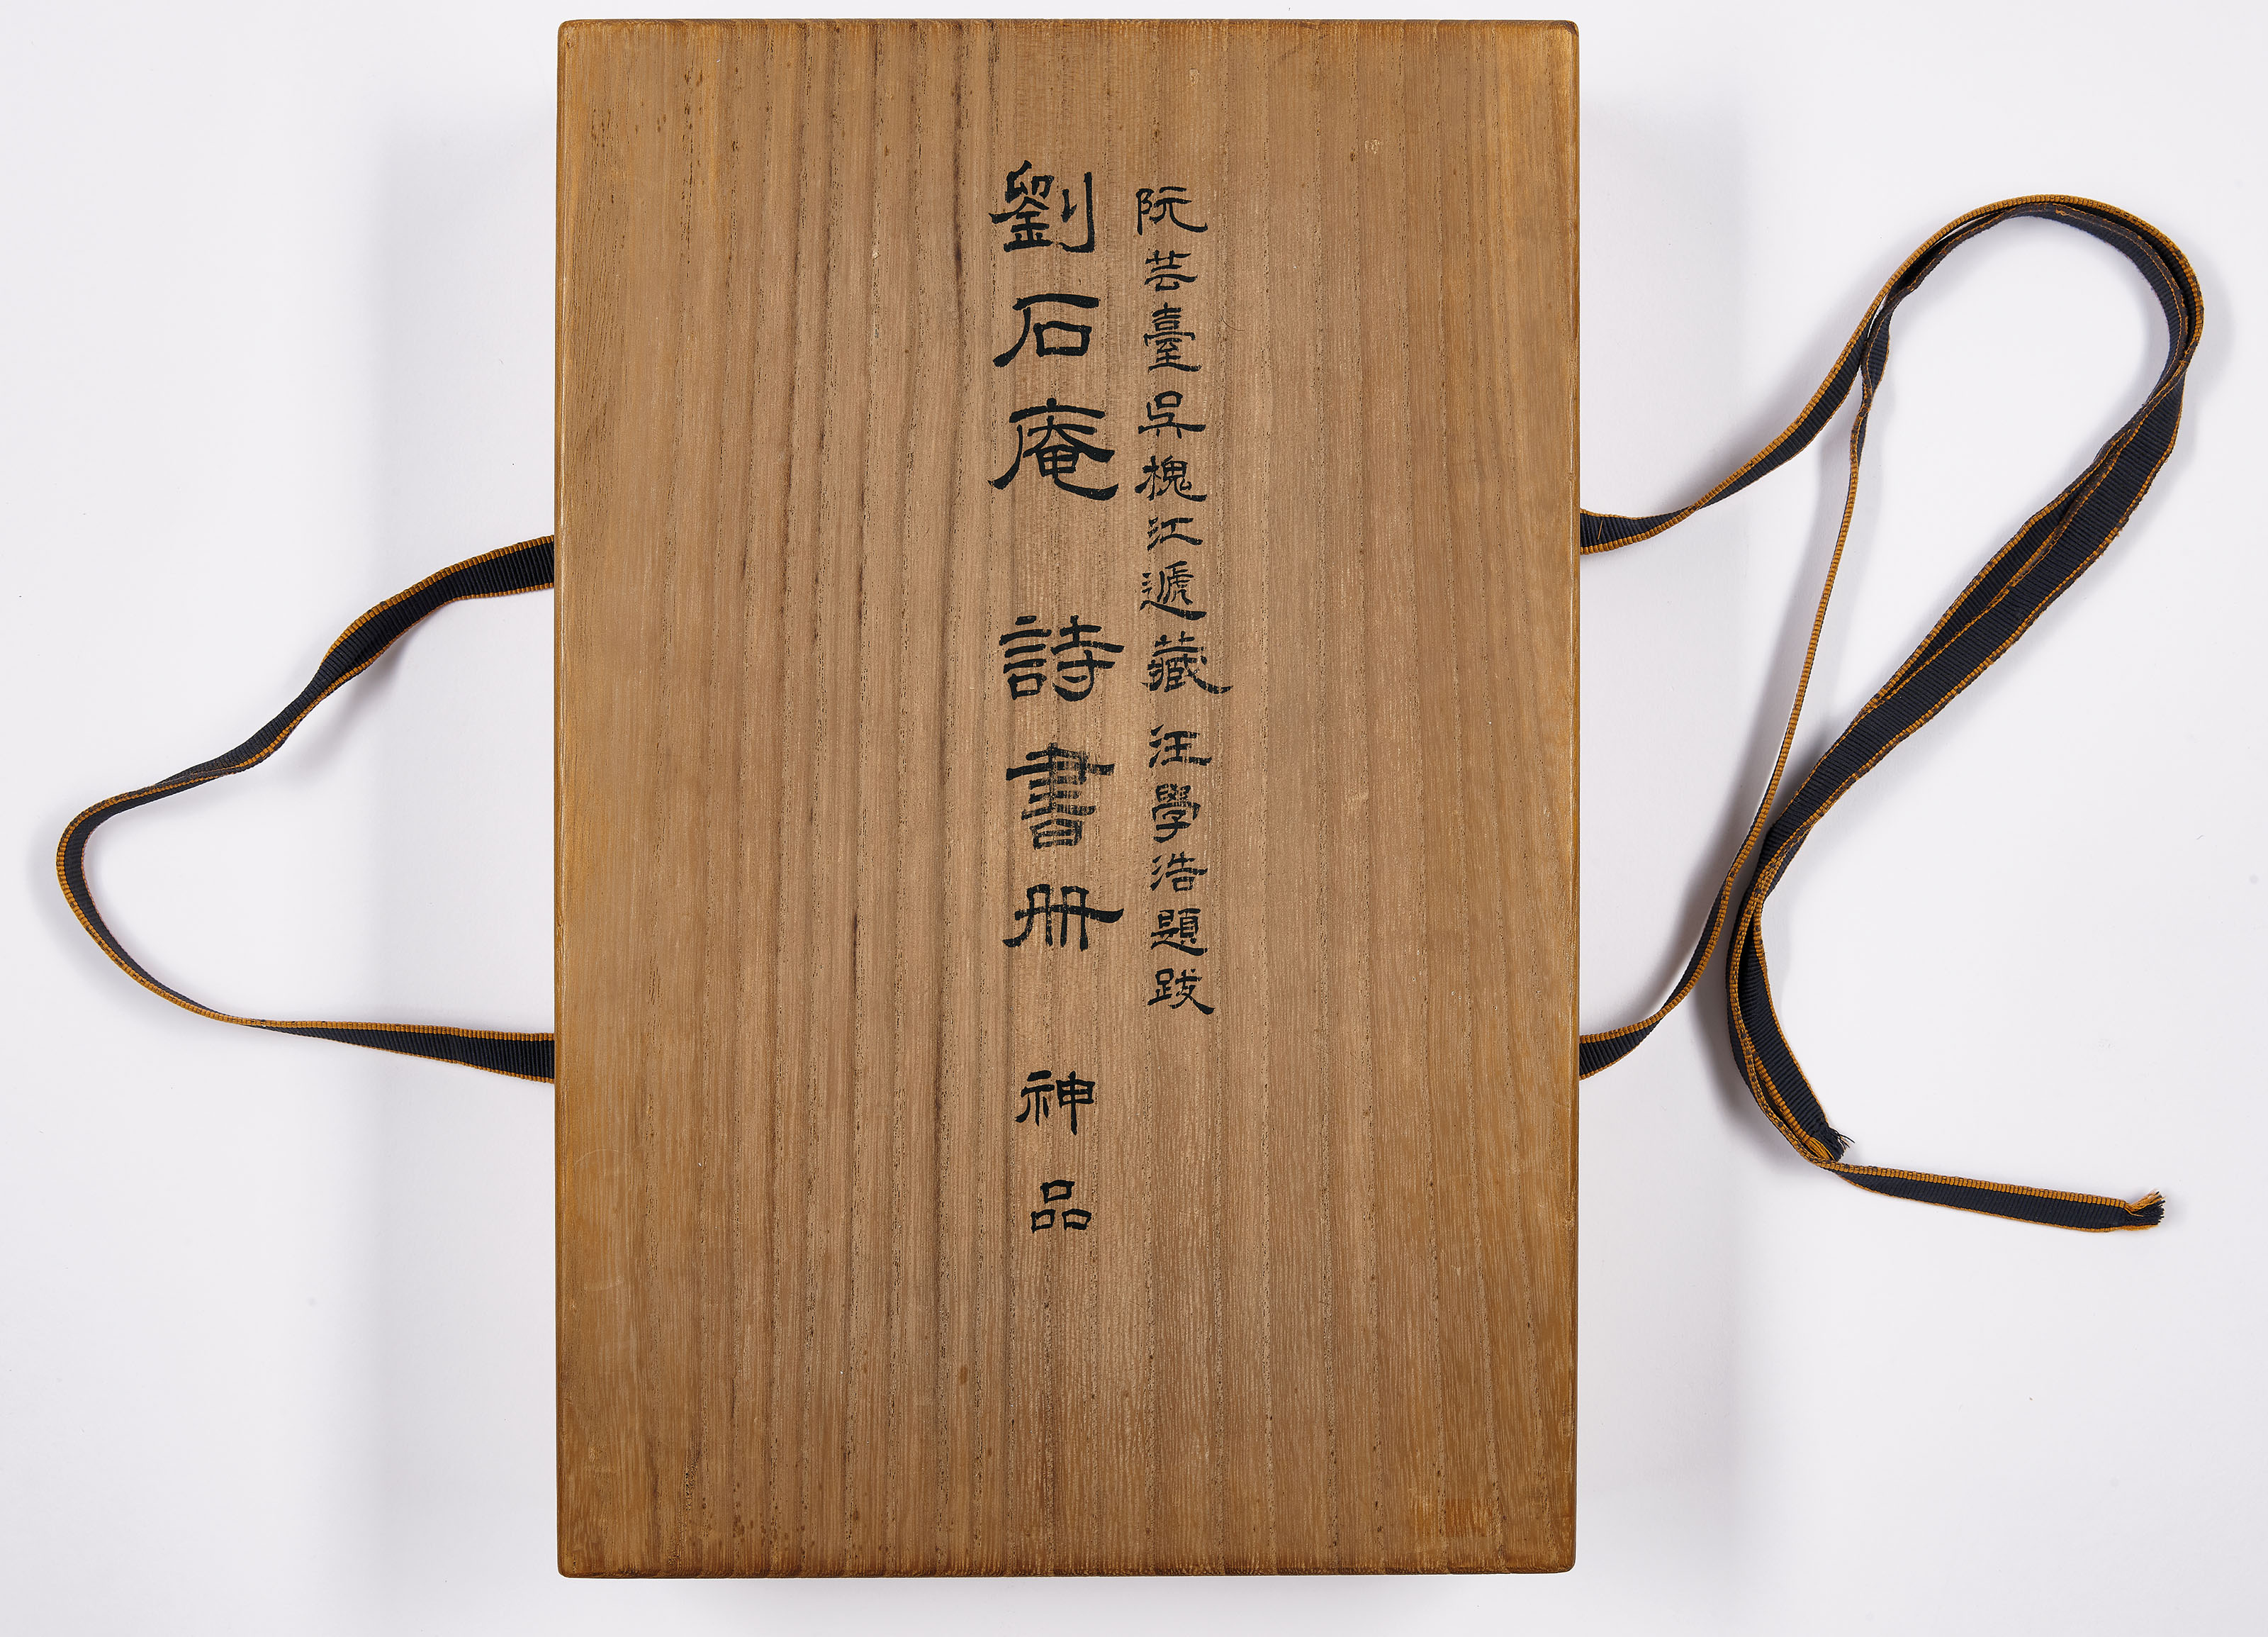 阮芸臺吳槐江遞藏汪學浩題跋
劉石庵詩書冊神品